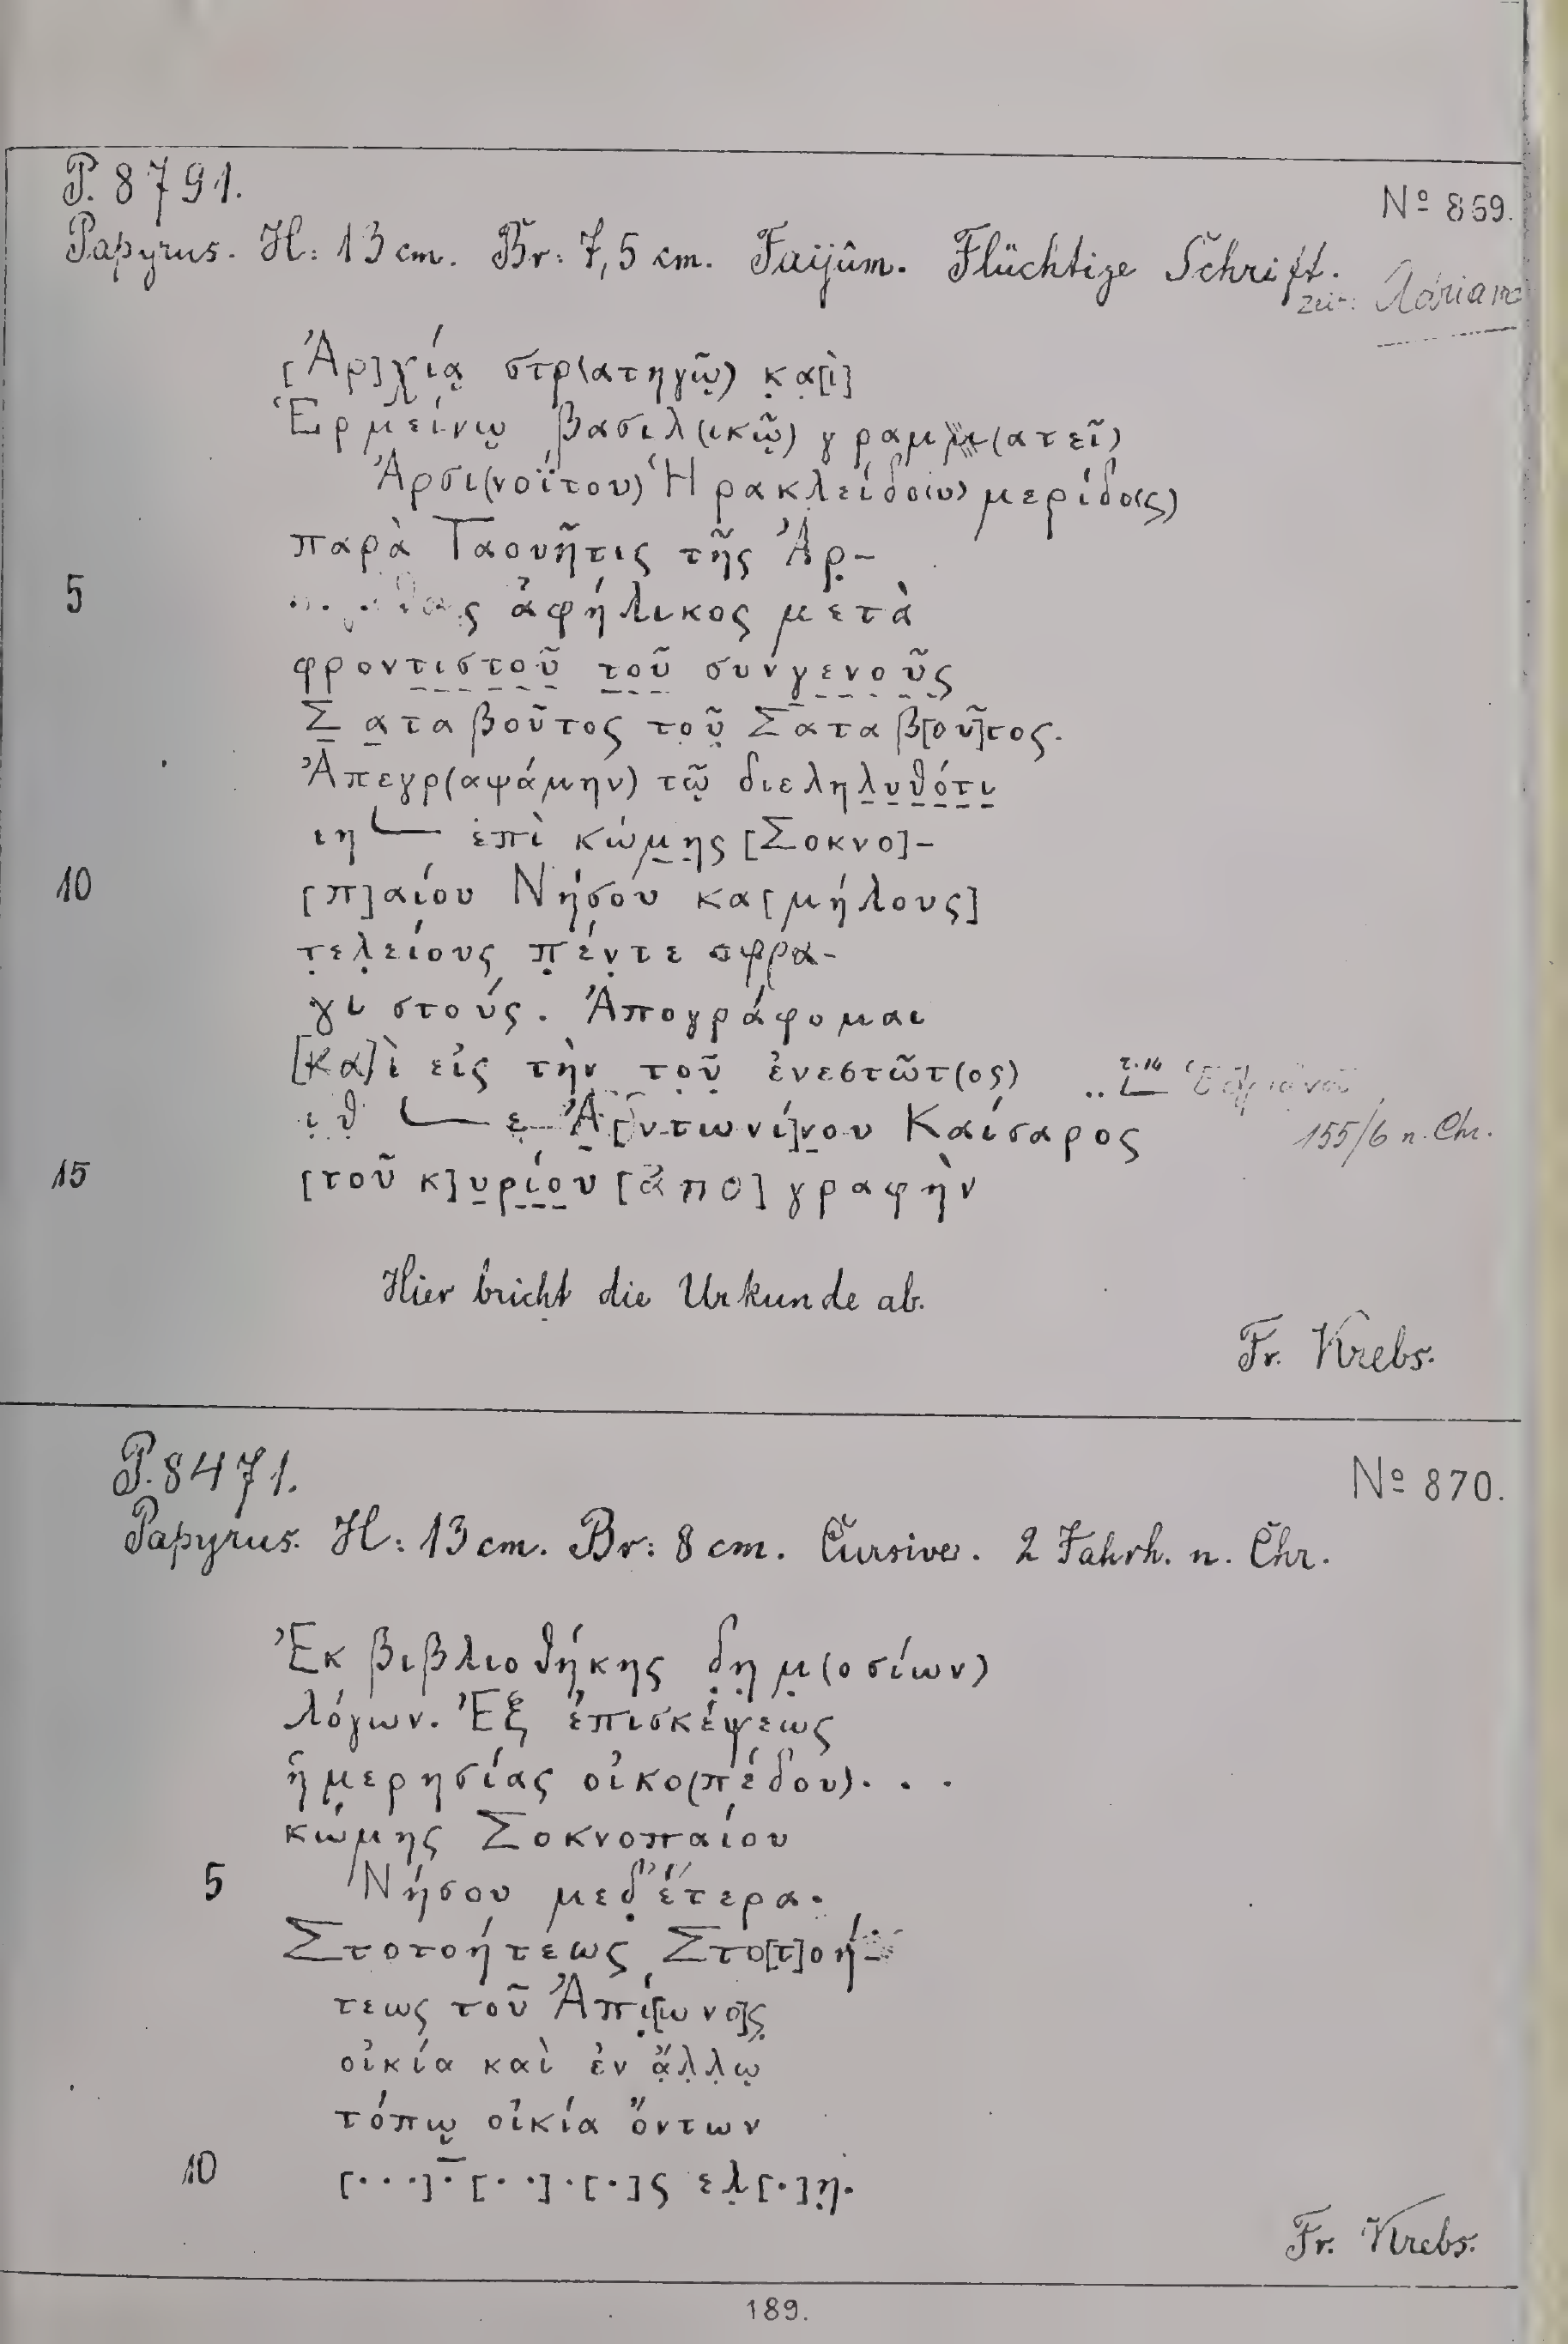 P. 8791.
No 869.
Papyrus. H: 13 cm. Br: 7,5 cm. Faijûm. Flüchtige Schrift.
Zeit:
[Ἀρ]χίᾳ στρ(ατηγῷ) κα[ὶ]
Ἑρμείνῳ βασιλ(ικῷ) γραμμ(ατεῖ)
Ἀρσι(νοΐτου) Ἡρακλείδο(υ) μερίδο(ς)
παρὰ Ταουῆτις τῆς Ἀρ-
5 ς ἀφήλικος μετὰ
φροντιστοῦ τοῦ συνγενοῦς
Σαταβοῦτος τοῦ Σαταβ[οῦ]τος.
Ἀπεγρ(αψάμην) τῷ διεληλυθότι
ιη 𐅹 ἐπὶ κώμης [Σοκνο]-
10 [π]αίου Νήσου κα[μήλους]
τελείους πέντε σφρα-
γιστούς. Ἀπογράφομαι
[κα]ὶ εἰς τὴν τοῦ ἐνεστῶτ(ος)
ιθ 𐅹 Ἀ[ντωνί]νου Καίσαρος
155/6 n. Chr.
15 [τοῦ κ]υρίου [ἀπο]γραφὴν
Hier bricht die Urkunde ab.
Fr. Krebs.
P. 8471.
No 870.
Papyrus. H: 13 cm. Br: 8 cm. Cursive. 2 Jahrh. n. Chr.
Ἐκ βιβλιοθήκης δημ(οσίων)
λόγων. Ἐξ ἐπισκέψεως
ἡμερησίας οἰκο(πέδου). . .
κώμης Σοκνοπαίου
5 Νήσου μεθ' ἕτερα.
Στοτοήτεως Στο[τ]οή-
τεως τοῦ Ἀπί[ωνο]ς
οἰκία καὶ ἐν ἄλλῳ
τόπῳ οἰκία ὄντων
10 [. . .] . [. .] . [.]ς ελ[.]η.
Fr. Krebs.
189.